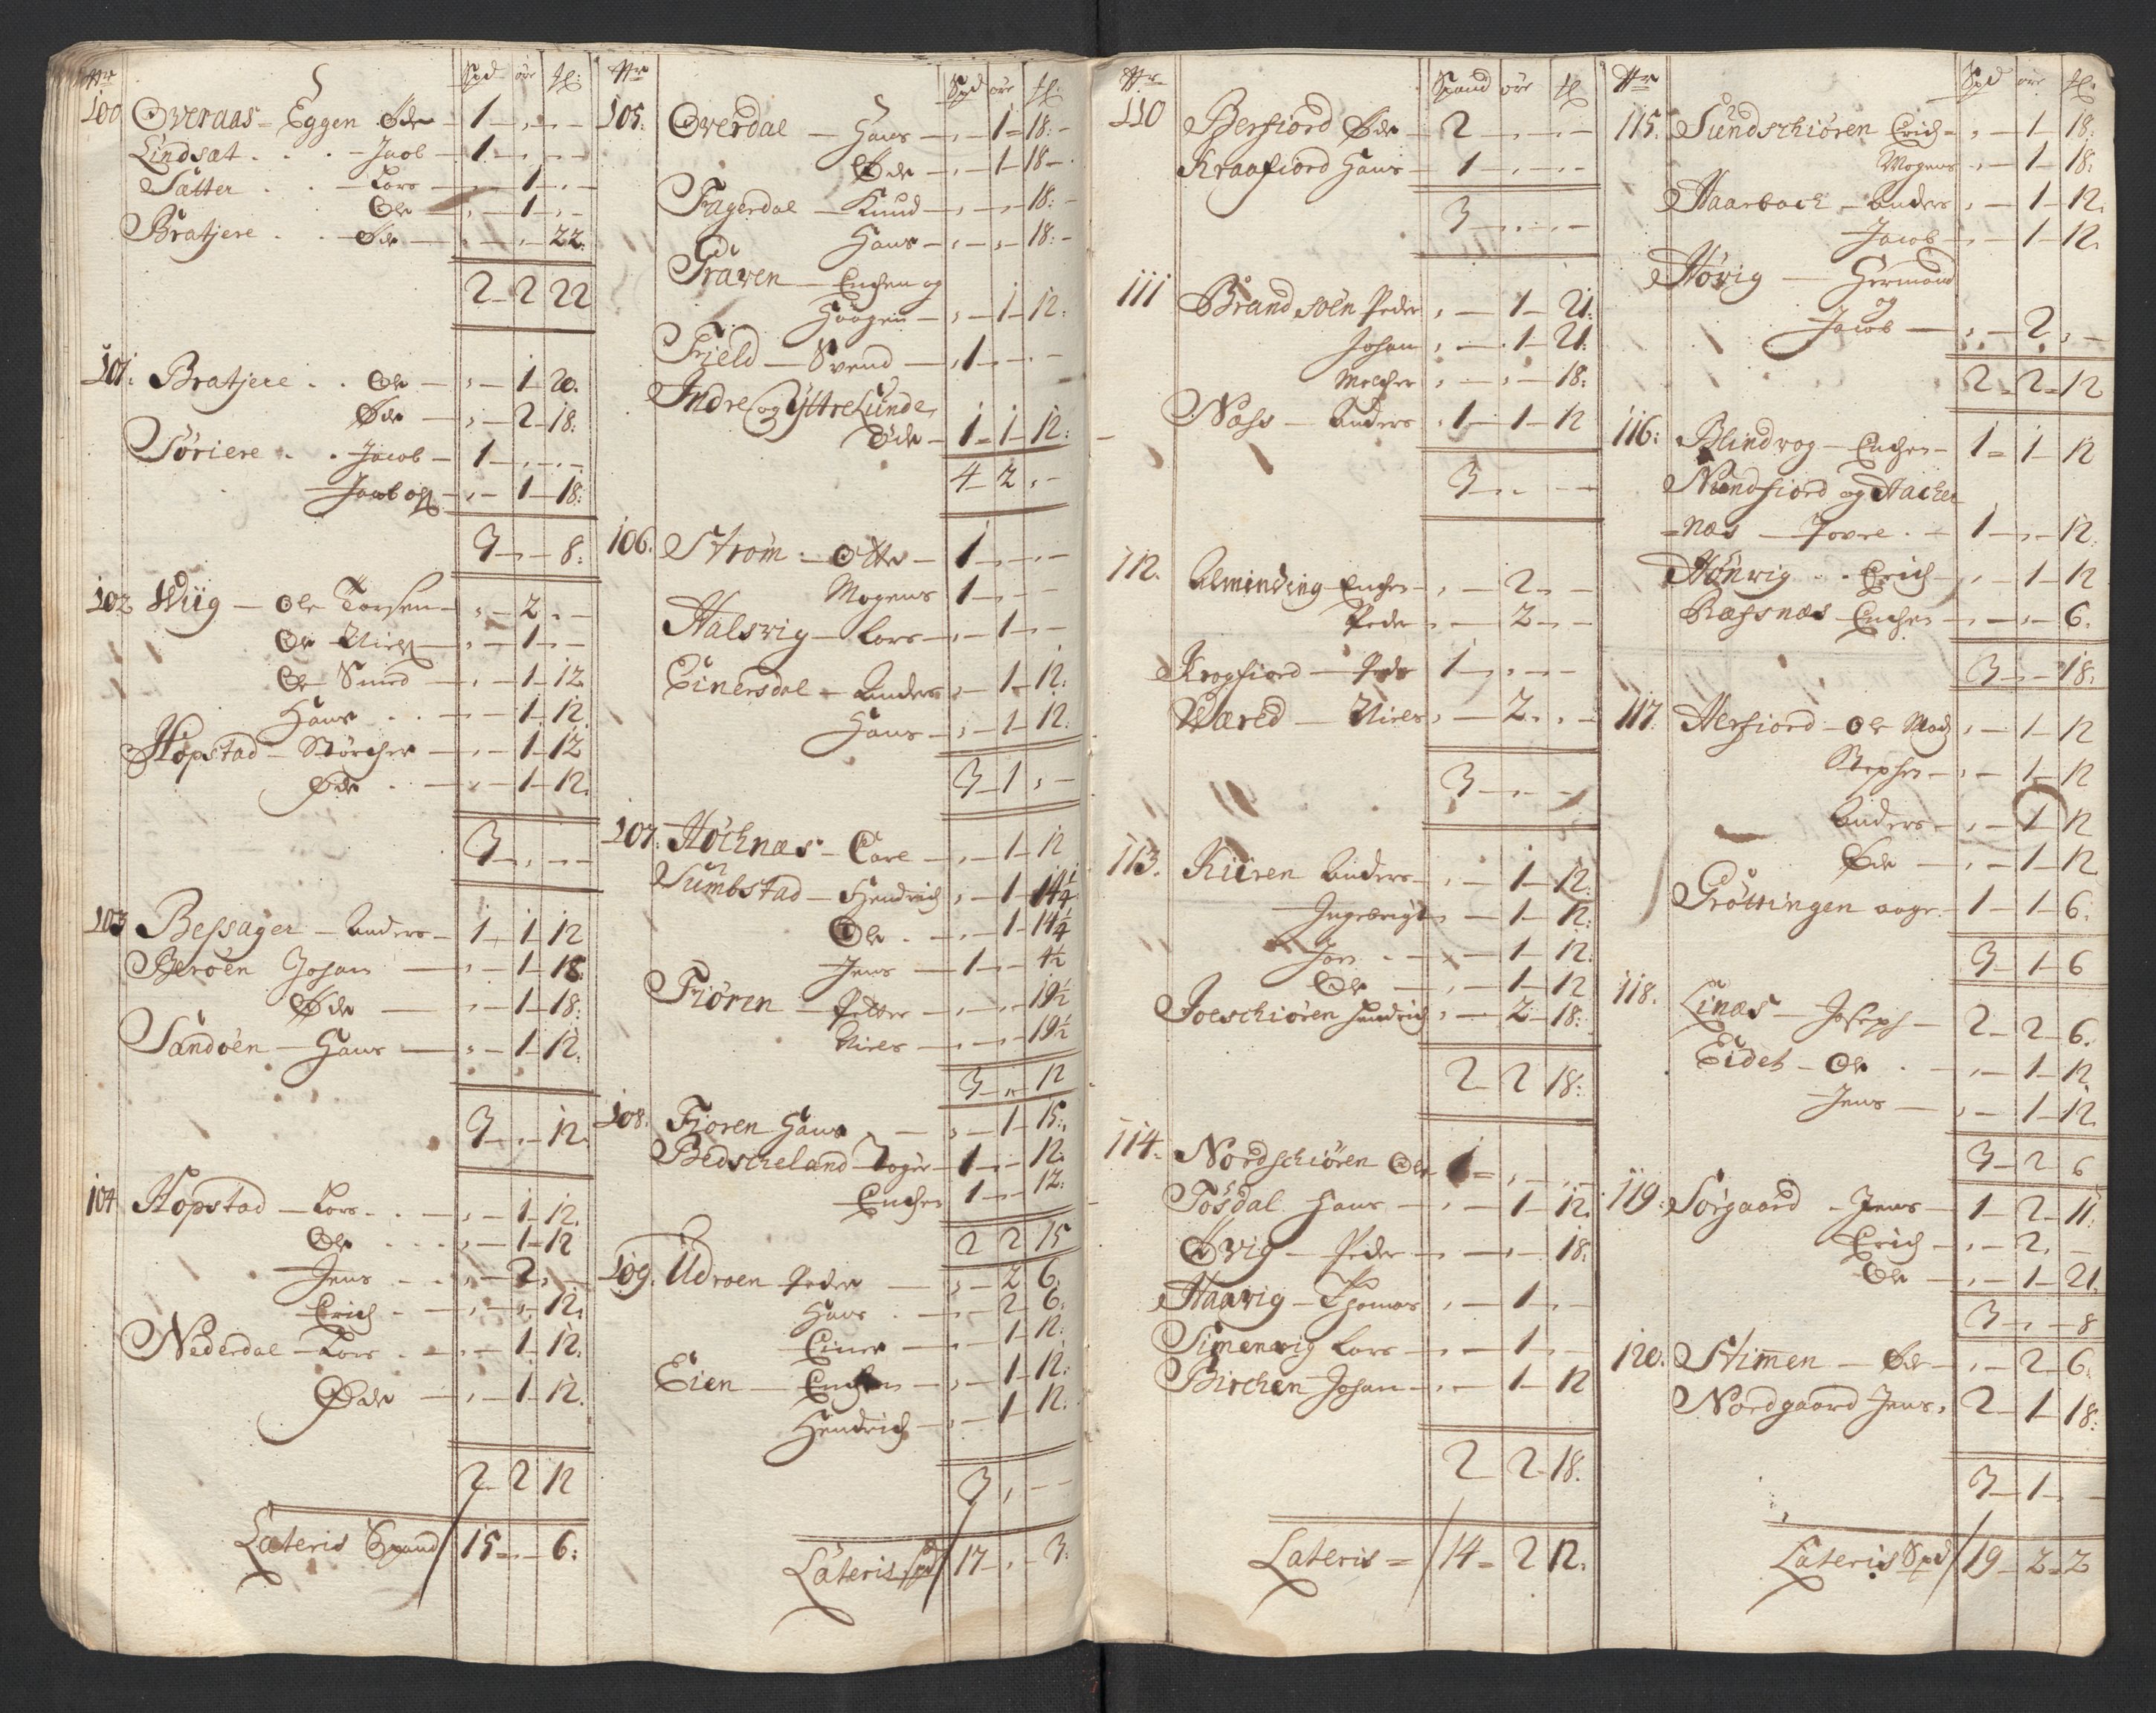 Nr Spd øre ʆ:
100 Overaas - Eggen Øde - 1 - , - , -
Lindsæt . . - Jacob - 1 - , - , -
Sætter . . - Lars - , - 1 - , -
Ole - , - 1 - , -
Bratjere . . - Øde - , - , - 22.
2 - 2 22
101. Bratjere . . Ole - , - 1 - 20.
Øde - , - 2 - 18.
Söriere . . Jacob - 1 - , - , -
Jacob - , - 1 - 18:
3 - , - 8:
102 Wiig - Ole Torsen - , - 2 - , -
Ole Niels - , - 1 - , -
Ole Smed - , - 1 - 12
Hans . . - , - 1 - 12.
Hopstad - - , - 1 - 12
Øde . - , - 1 - 12.
3 - , - , -
103 Bessager - Anders - 1 - 1 - 12
Beröen Johan - , - 1 - 18
Øde - , - 1 - 18:
Sandöen - Hans - , - 1 - 12.
3 - , - 12.
104 Hopstad - Lars . . - , - 1 - 12.
Ole . . . , - 1 - 12
Jens . . , - 2 - , -
Erich . - , - , - 12.
Nederdal - Lars . - , - 1 - 12.
Øde - , - 1 - 12.
2 - 2 12
Lateris Spand / 15 - , - 6:
Nr Spd øre ʆ:
105. Overdal - Hans - , - 1 - 18: -
Øde - , - 1 - 18 -
Fagerdal - Knud - , - , - 18: -
Hans - , - , - 18: -
Gräven - Encken og
Haagen - , - 1 - 12:
Field - Svend - , 1 - , - , -
Indre og Yttre Lunde,
Øde - 1 - 1 - 12:
4 - 2 , -
106. Ström . - Otte - 1 - , - , -
Mogens 1 - , - , -
Halsvig - Lars - , - 1 - , -
Einersdal - Anders , - 1 - 12:
Hans - , - 1 - 12.
3 - 1 , -
107. Höchnæs - Carl - , - 1 - 12
Sumbstad - Hendrich , - 1 - 14 1/4
Ole . - , - 1 - 14 1/4
Jens - 1 - , - 4 1/2
Fiören - Petter - , - , - 19 1/2
Niels - , - , - 19 1/2
3 - , - 12
108. Fjoren Hans - , - 1 - 15.
Bedscheland - 1 - , - 12.
Encken 1 - , - 12:
2 2 15
109. Udroen Peder - , - 2 6.
Hans . - , - 2 - 6.
Einer - , - 1 - 12:
Eien - Encken - , - 1 - 12:
Hendrich - , - 1 - 12.
3 , - -
Lateris Spd / 17 - , - 3:
Nr Spand øre ʆ
110 Berfiord Øde - 2 - , - , -
Kraafiord Hans - 1 - , - , -
3 - , - , -
111 Brandsöen Peder , - 1 - 21:
Johan , - 1 - 21.
Melcher , - , - 18:
Næss - Anders . 1 - 1 - 12
3 - , - , -
112. Alminding Encken - , - 2 - , -
Peder - , - 2 - , -
Krogfiord - Peder 1 - , - , -
Wæred - Niels , - 2 - , -
3 - , - , -
113. Kiiren Anders - , - 1 - 12:
Ingebrigt , - 1 - 12:
Jon . - , - 1 - 12:
Ole - , - 1 - 12
Joeschiören Hendrich , - 2 - 18:
2 - 2 18:
114. Nordschiören Ole 1 - , - , -
Tösdal Hans - , - 1 - 12.
Øvig - Peder - , - , - 18:
Haavig - Thomas , - 1 - , -
Simenvig Lars - , - 1 - , -
Birchen Johan - , - 1 - 12
2 2 - 18.
Lateris = / 14 - 2 12.
Nr Spd øre ʆ.
115. Sundschiören Erich - , - 1 - 18:
Mogens - , - 1 - 18:
Haarbach - Anders , - 1 - 12.
Jacob - , - 1 - 12.
Hövig - Hermand
og
Jacob - , - 2 , -
2 - 2 - 12
116: Blindvog - Encken - 1 - 1 - 12
Nundfiord og Hacken
=næs - Tovre . - 1 - , - 12.
Hönvig . . Erich - , - 1 - 12
Ræssnæs - Encken - , - , - 6.
3 - , - 18.
117. Herfiord - Ole Mads , - 1 - 12
Stephen - , - 1 - 12
Anders - , - 1 - 12
Øde - , - 1 - 12
Gröttingen aage - 1 - 1 - 6.
3 - 1 - 6
118. Linæs - Joseph - 2 - 2 - 6.
Eidet - Ole . - , - 1 - 12
Jens - , - 1 - 12.
3 - 2 6
119. Sörgaard - Jens - 1 - 2 - 11.
Erich - , - 2. -
Ole - , - 1 - 21.
3 - , - 8
120. Stimen - Øde - , - 2 - 6.
Nordgaard Jens , 2 - 1 - 18:
3 - 1 - , -
Lateris Spd / 19 - 2 - 2